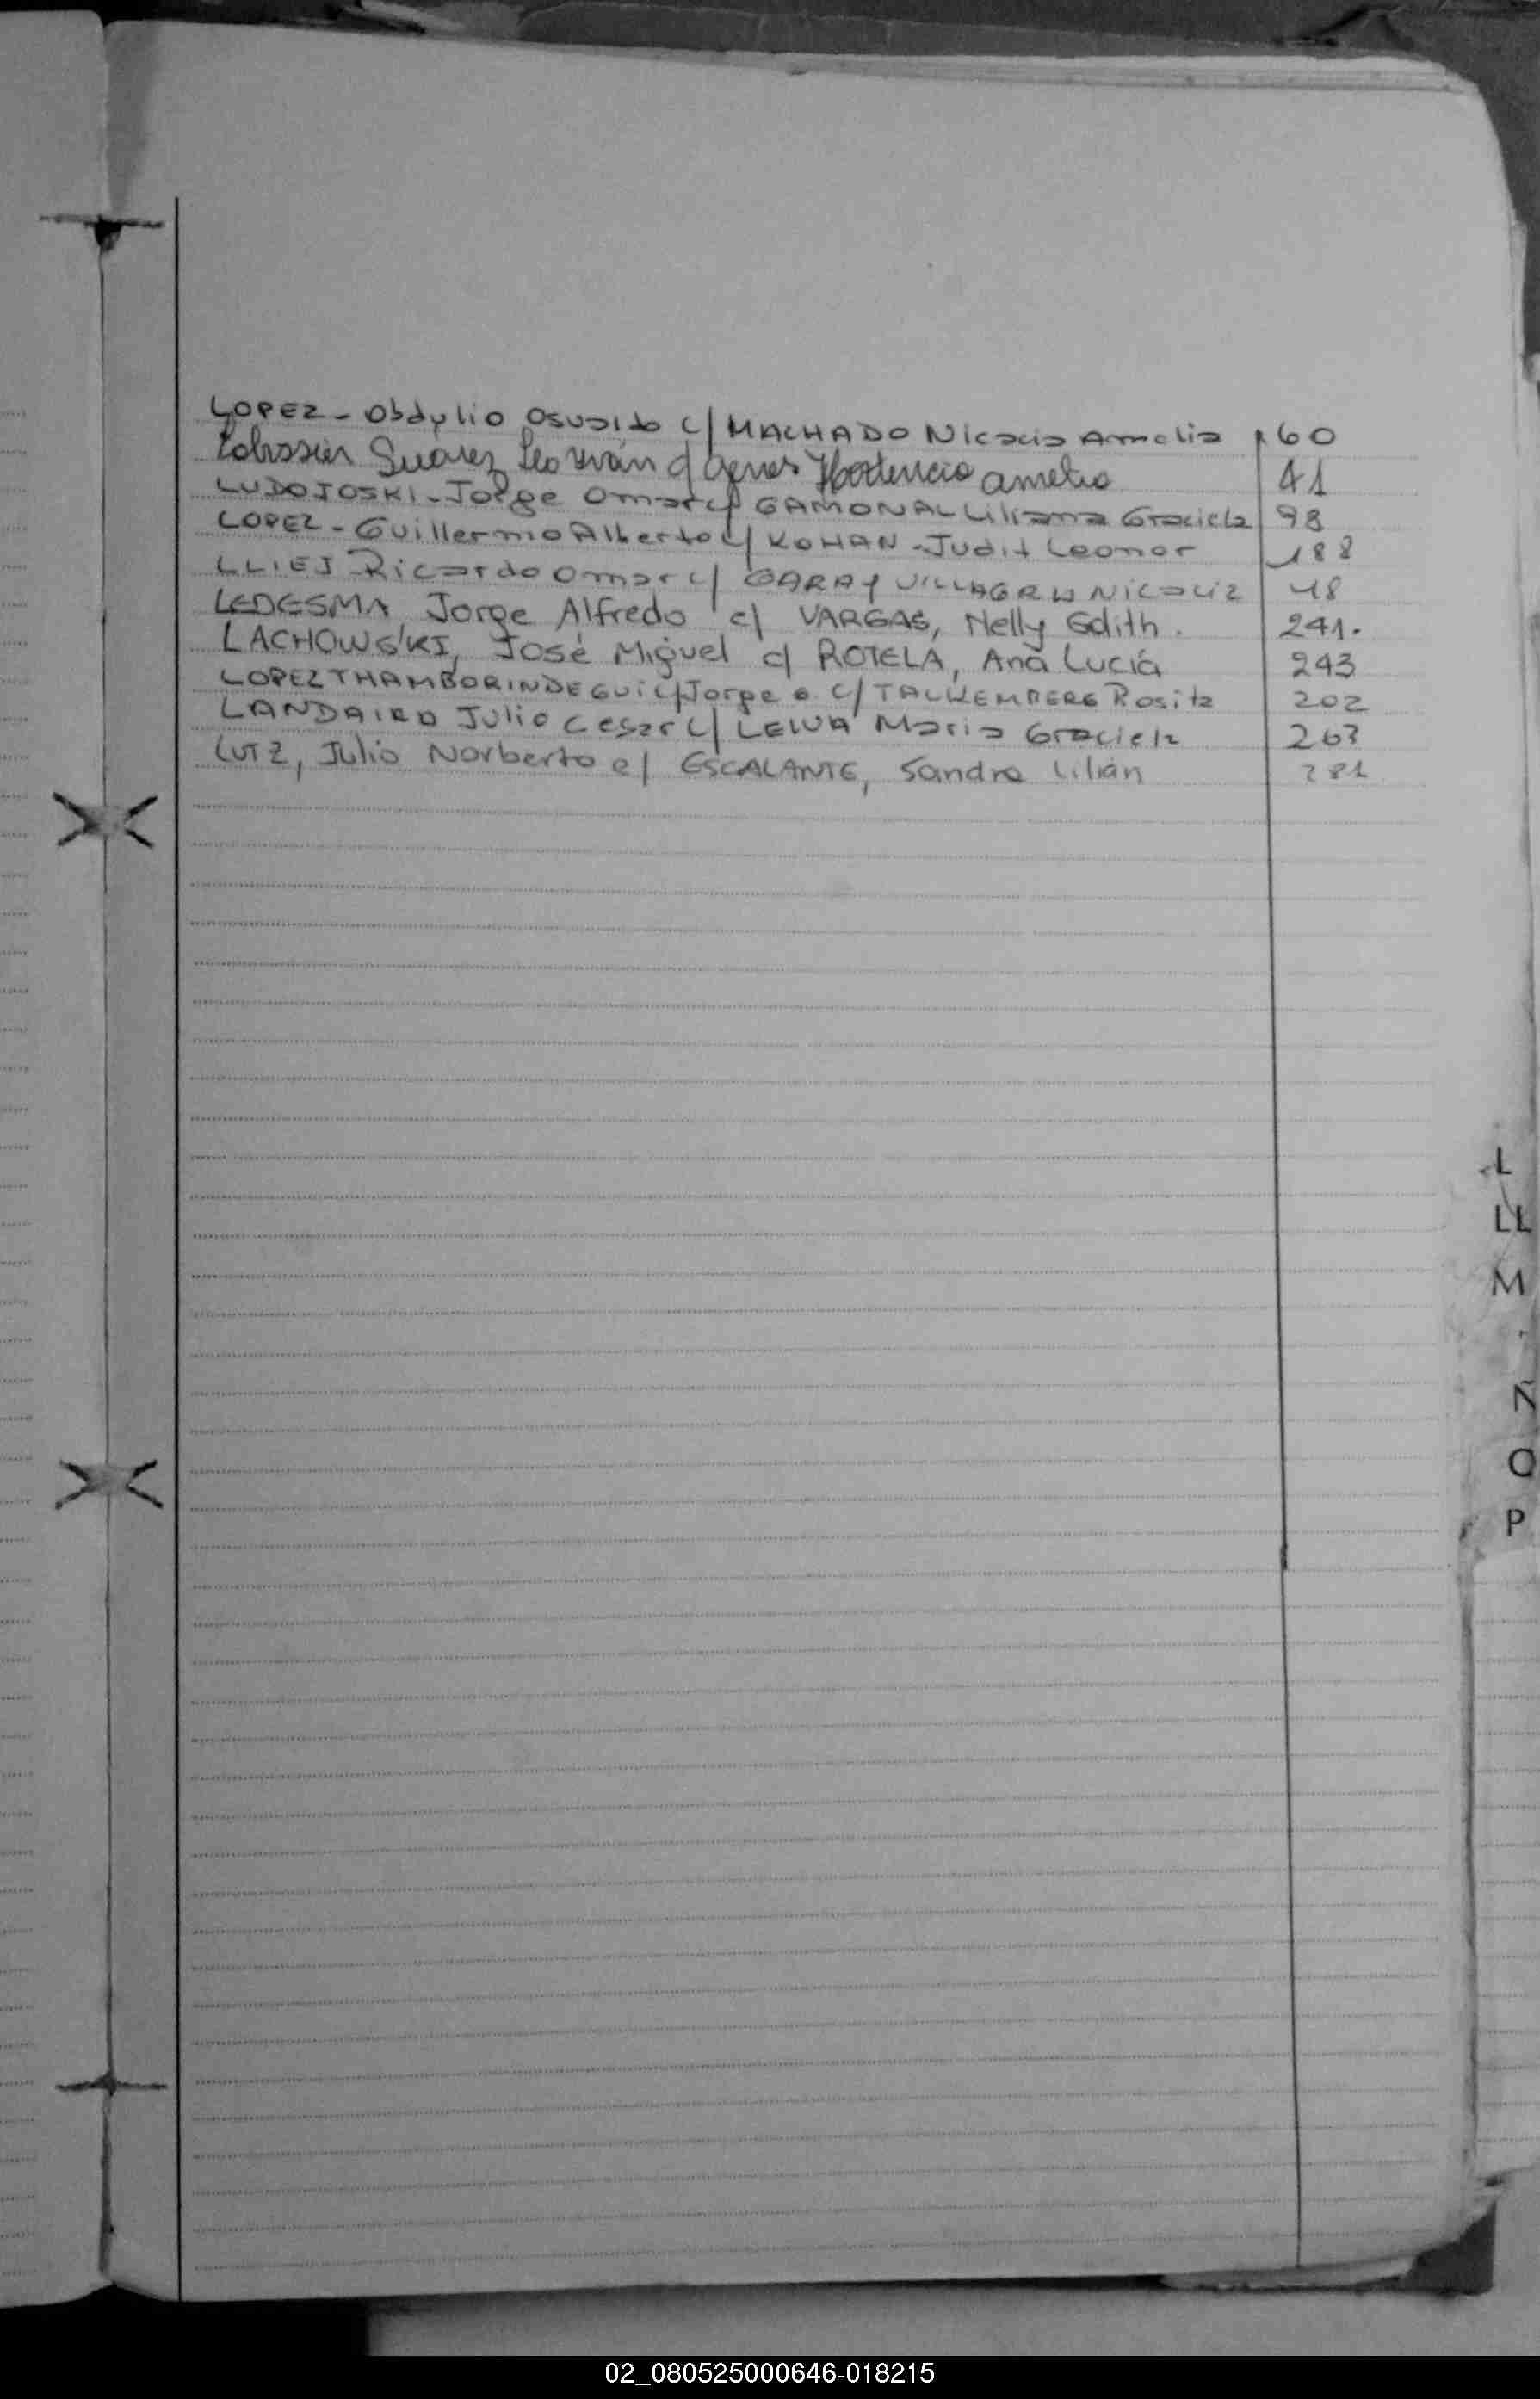 LOPEZ - Obdulio Osvaldo c/ MACHADO Nicacia Amelia 60
Suárez c/ Hortencia Amelia 41
LUDOJOSKI - Jorge Omar c/ GAMONAL Liliana Graciela 98
LOPEZ - Guillermo Alberto c/ KOHAN - Judit Leonor 188
LLIEJ Ricardo Omar c/ GARAY 48
LEDESMA Jorge Alfredo c/ VARGAS, Nelly Edith. 241.
LACHOWSKI, José Miguel c/ ROTELA, Ana Lucía 243
LOPEZ THAMBORINDEGUI c/ Rosita 202
Julio Cesar c/ LEIVA Maria Graciela 263
LUTZ, Julio Norberto c/ ESCALANTE, Sandra Lilián 281
L
LL
M
Ñ
O
P
02_080525000646-018215